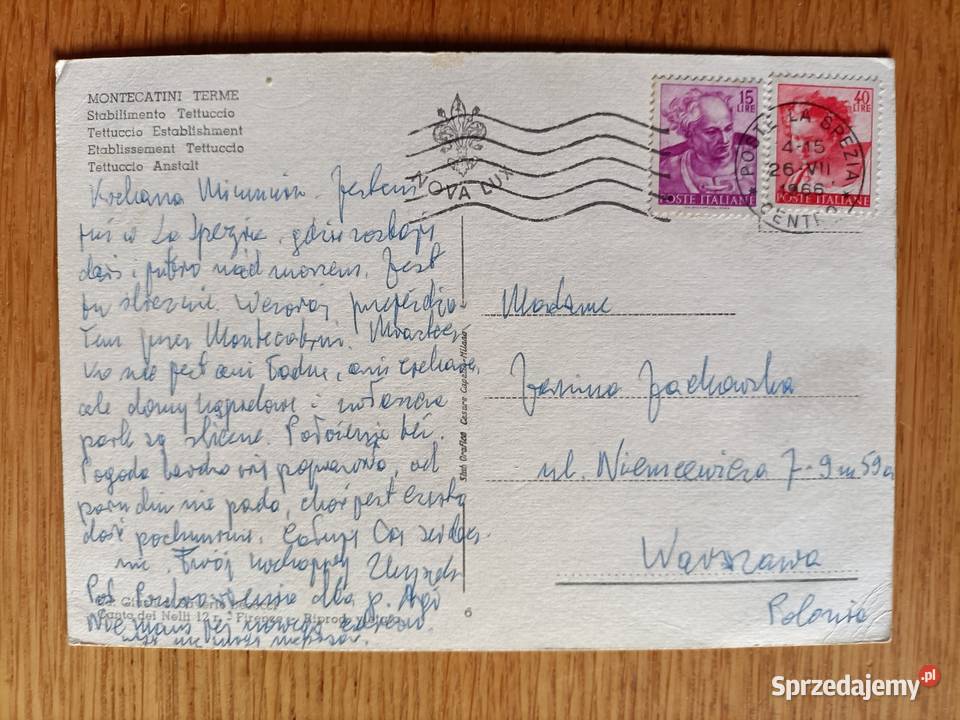 MONTECATINI TERME
Stabilimento Tettuccio
Tettuccio Establishment
Etablissement Tettuccio
Tettuccio Anstalt
NOVA LUX
15 LIRE
POSTE ITALIANE
40 LIRE
POSTE ITALIANE
POSTE LA SPEZIA
4-15
26 VII
1966
CENTRO
Kochana Jestem
już w La Spezia, gdzie
dziś i jutro nad morzem. Jest
tu ślicznie. Wczoraj przejeżdża
łem przez Montecatini.
nie jest ani ładne, ani ciekawe,
ale domy i zwłaszcza
park są śliczne. Położenie też.
Pogoda bardzo się poprawiła, od
paru dni nie pada, choć jest
dość pochmurno. Całuję Cię serdecz
nie. Twój kochający
Pozdrowienia dla p.
Nie mam
Madame
Janina Jackowska
ul. Niemcewicza 7-9 m 59a
Warszawa
Polonia
Stab. Grafico Cesare Capello-Milano
Canto dei Nelli 12 r. - Firenze - Riprod. vietata
6
Sprzedajemy.pl